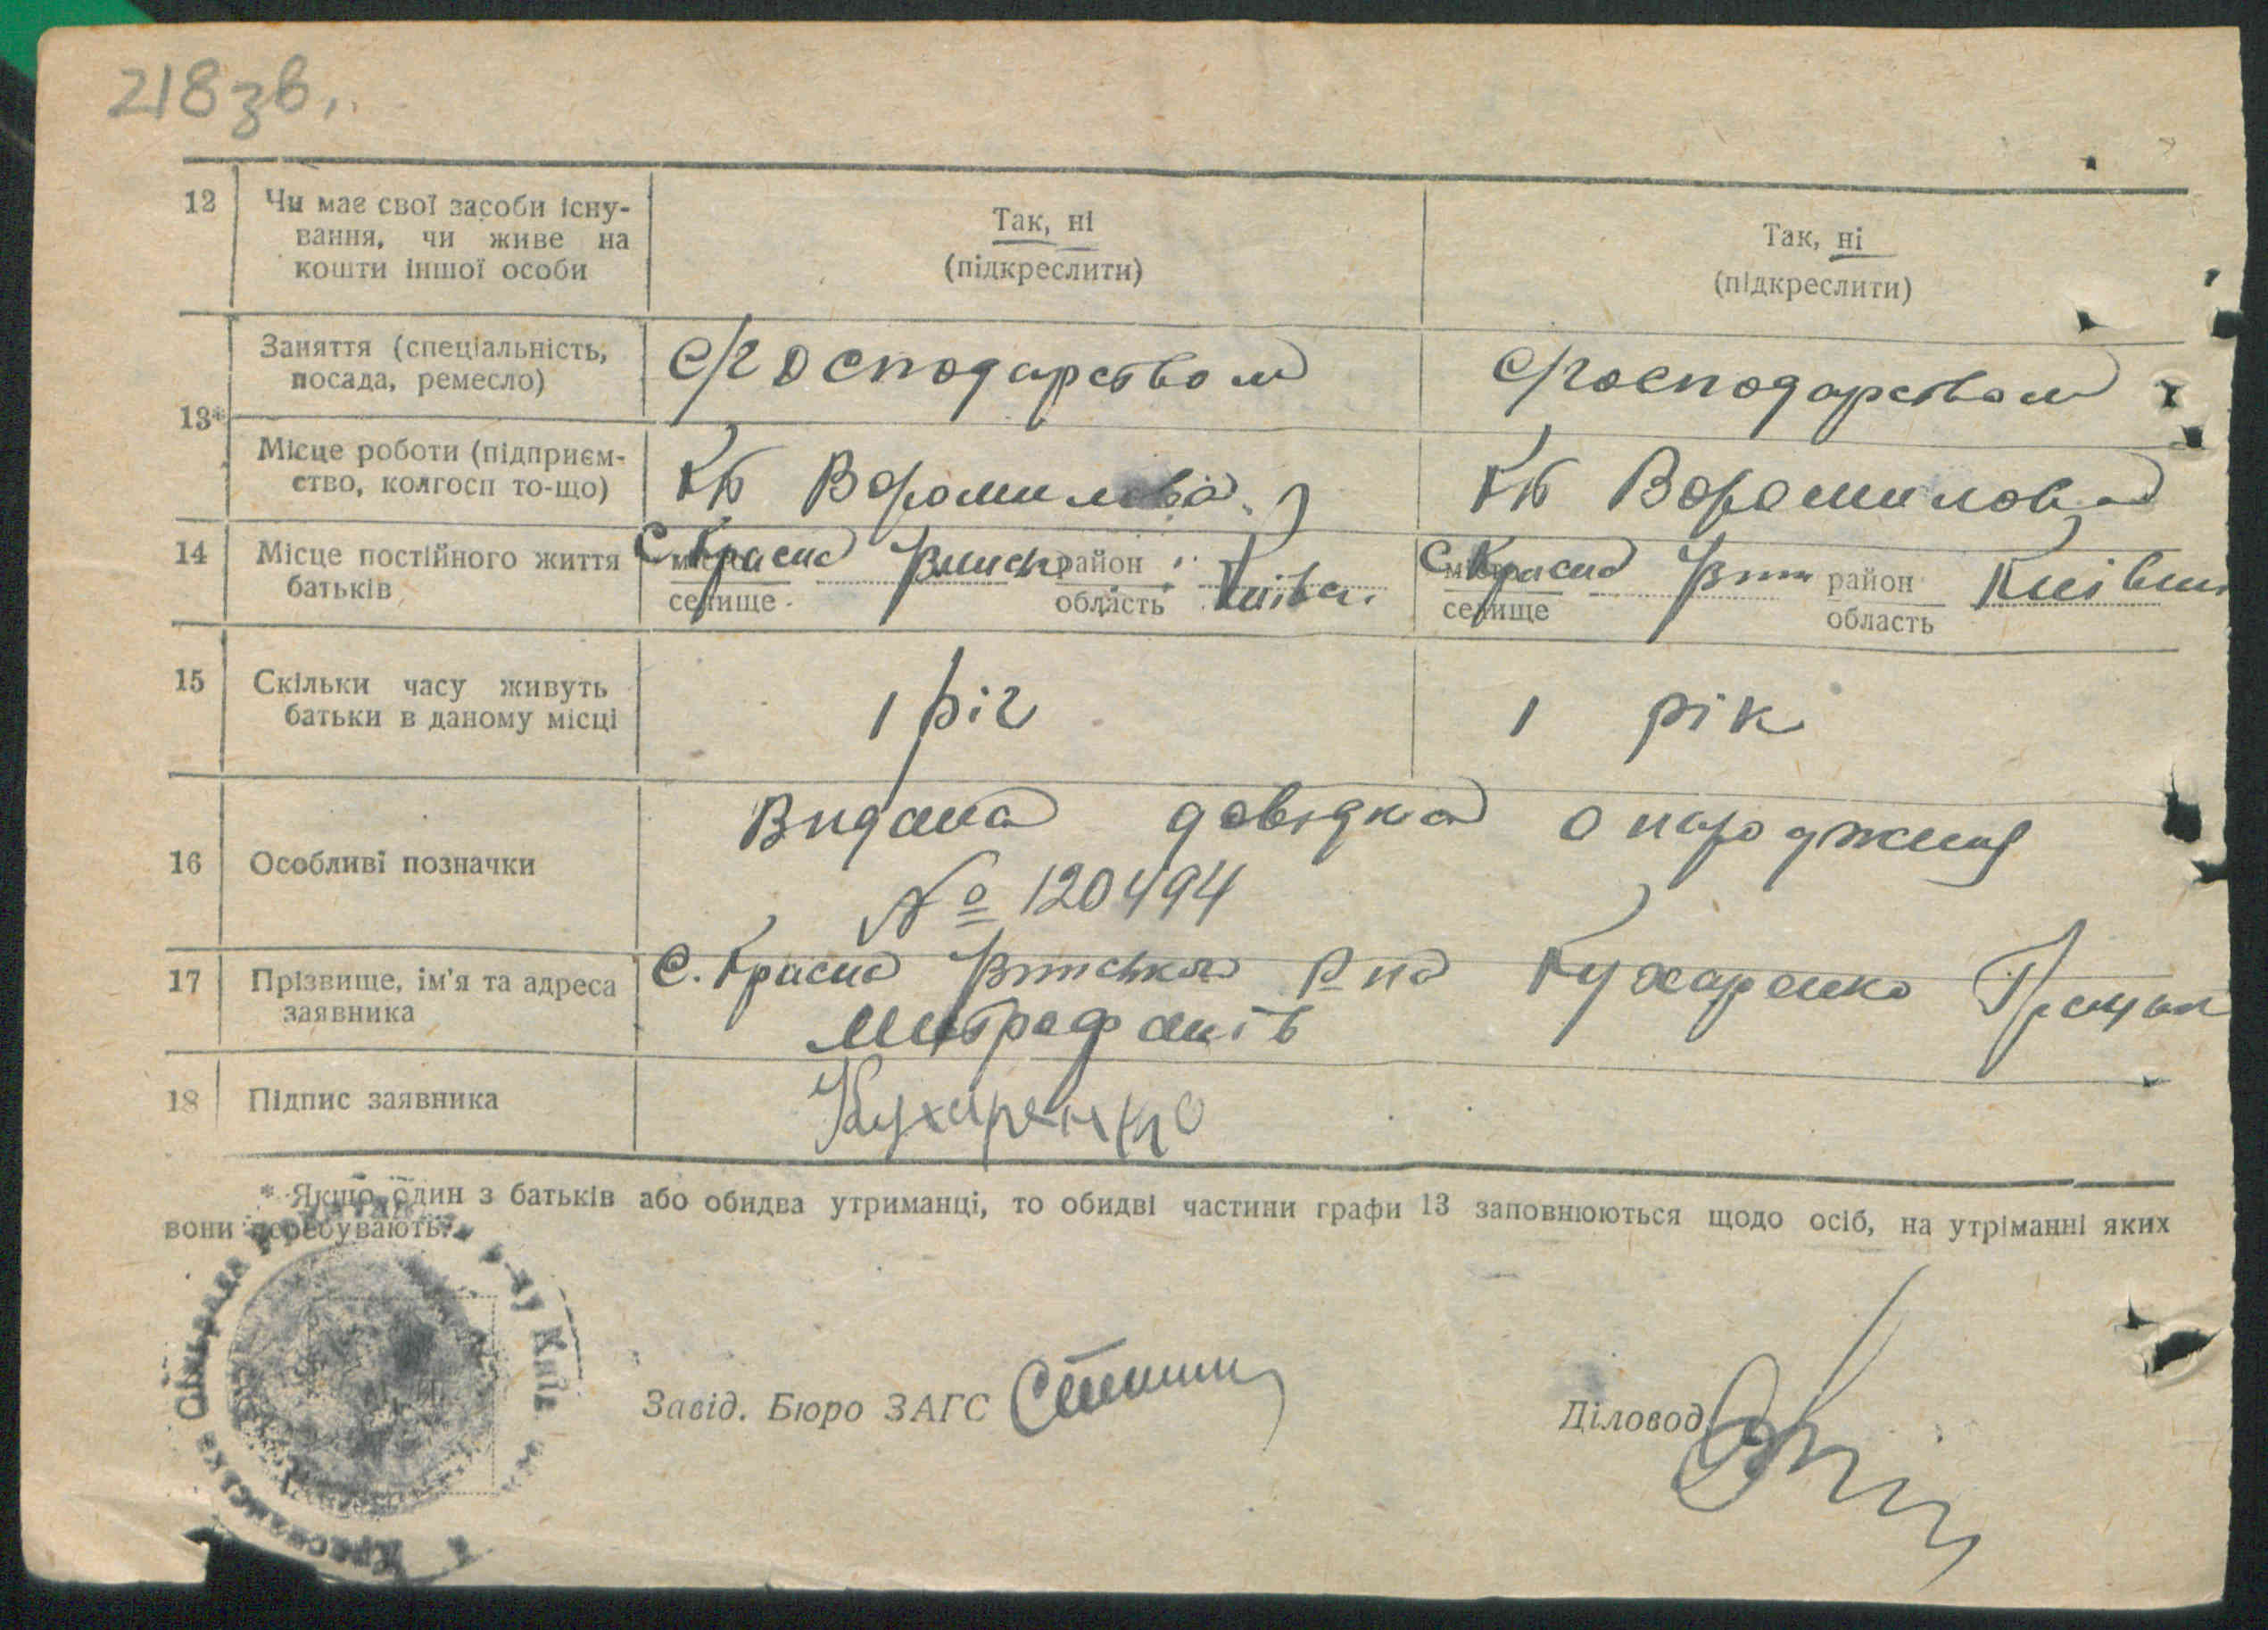 218 зв.
12 Чи має свої засоби існу-
вання, чи живе на
кошти іншої особи
Так, ні
(підкреслити)
Так, ні
(підкреслити)
13*
Заняття (спеціальність,
посада, ремесло)
с/господарством
с/господарством
Місце роботи (підприєм-
ство, колгосп то-що)
Ворошилова
Ворошилова
14 Місце постійного життя
батьків
с. Красна район Київс.
селище область
с. Красна район Київськ
селище область
15 Скільки часу живуть
батьки в даному місці
1 ріг
1 рік
16 Особливі позначки
Видана довідка о народженя
№ 120494
17 Прізвище, ім'я та адреса
заявника
с. Красна р-на Кухаренко
Митрофанів
18 Підпис заявника
Кухаренко
* Якщо один з батьків або обидва утриманці, то обидві частини графи 13 заповнюються щодо осіб, на утріманні яких
вони перебувають.
Завід. Бюро ЗАГС
Діловод